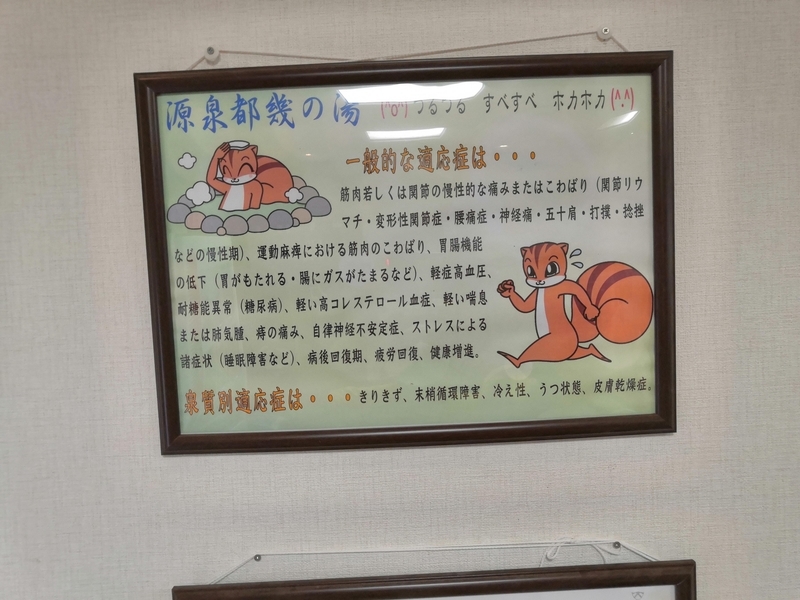 源泉都幾の湯 (^o^) つるつる すべすべ ホカホカ (^.^)
一般的な適応症は・・・
筋肉若しくは関節の慢性的な痛みまたはこわばり（関節リウ
マチ・変形性関節症・腰痛症・神経痛・五十肩・打撲・捻挫
などの慢性期）、運動麻痺における筋肉のこわばり、胃腸機能
の低下（胃がもたれる・腸にガスがたまるなど）、軽症高血圧、
耐糖能異常（糖尿病）、軽い高コレステロール血症、軽い喘息
または肺気腫、痔の痛み、自律神経不安定症、ストレスによる
諸症状（睡眠障害など）、病後回復期、疲労回復、健康増進。
泉質別適応症は・・・きりきず、末梢循環障害、冷え性、うつ状態、皮膚乾燥症。